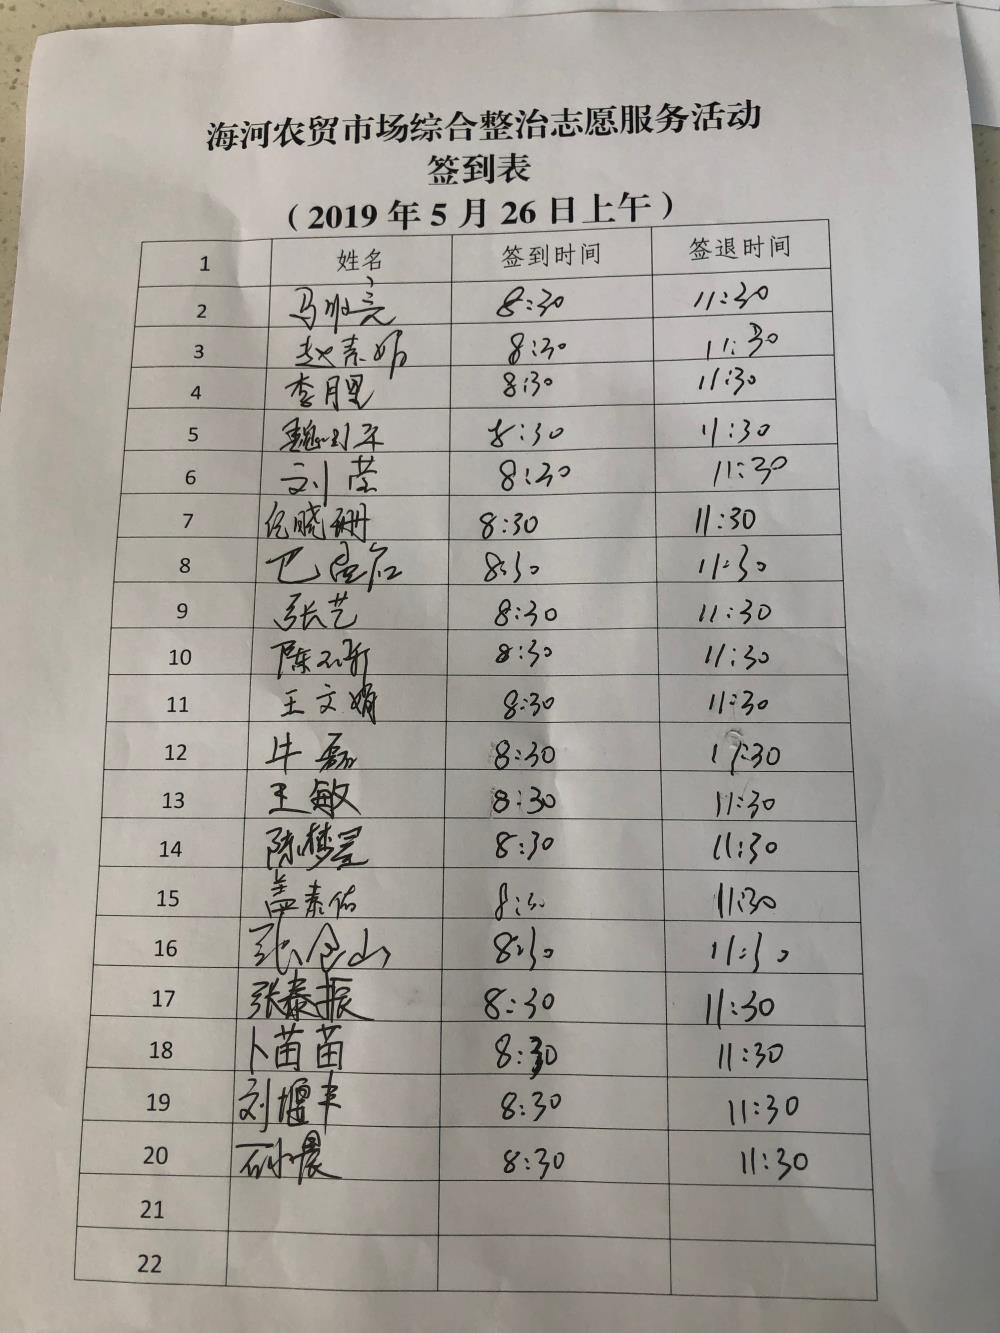 海河农贸市场综合整治志愿服务活动
签到表
（2019年5月26日上午）
1 姓名 签到时间 签退时间
2 马 亮 8:30 11:30
3 赵素娟 8:30 11:30
4 李月 8:30 11:30
5 魏 8:30 11:30
6 刘莹 8:30 11:30
7 倪晓珊 8:30 11:30
8 8:30 11:30
9 张艺 8:30 11:30
10 陈 8:30 11:30
11 王文娟 8:30 11:30
12 牛磊 8:30 11:30
13 王敏 8:30 11:30
14 陈梦星 8:30 11:30
15 盖素佑 8:30 11:30
16 张 山 8:30 11:30
17 张泰振 8:30 11:30
18 卜苗苗 8:30 11:30
19 刘堰丰 8:30 11:30
20 石小晨 8:30 11:30
21
22